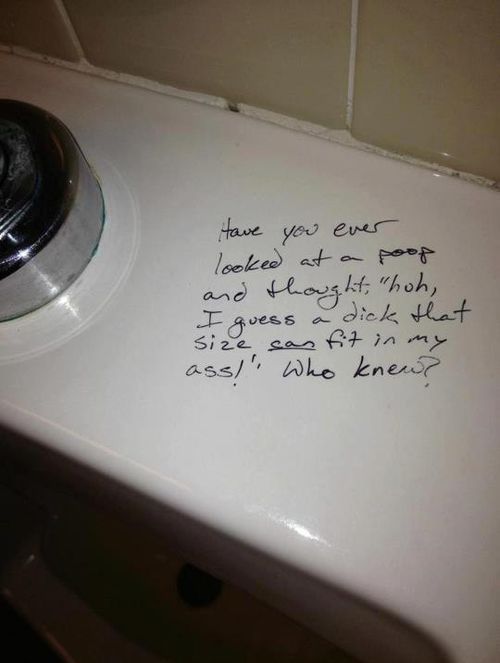 Have you ever
looked at a poop
and thought, "huh,
I guess a dick that
size can fit in my
ass!". Who knew?